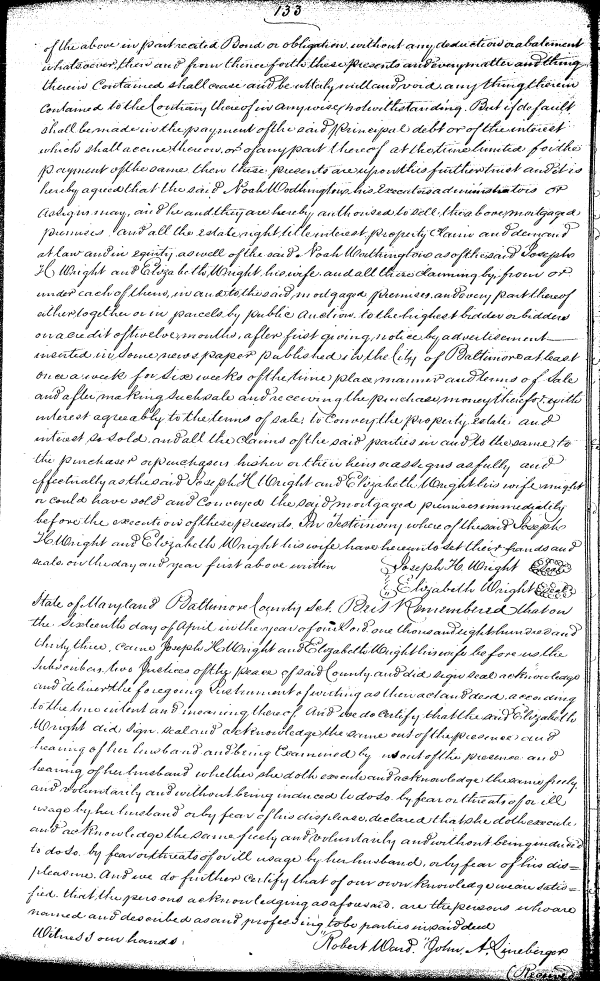 133
of the above in part recited Bond or obligation, without any deduction or abatement
whatsoever, then and from thence forth these presents and every matter and thing
therein Contained shall cease and be utterly null and void, any thing therein
Contained to the Contrary thereof in any wise notwithstanding. But if default
shall be made in the payment of the said principal debt or of the interest
which shall accrue thereon, or of any part thereof at the time limited for the
payment of the same then these presents are upon this further trust and it is
hereby agreed that the said Noah Worthington, his Executors administrators or
assigns may, and he and they are hereby authorised to sell, the above mortgaged
premises, and all the estate right, title interest property Claim and demand
at law and in equity, as well of the said Noah Worthington as of the said Joseph
H Wright and Elizabeth Wright, his wife, and all those claiming by, from or
under each of them, in and to the said, mortgaged premises, and every part thereof
either together or in parcels, by public Auction, to the highest bidder or bidders
on a credit of twelve months, after first giving notice by advertisement
inserted in some newspaper published in the City of Baltimore at least
once a week for six weeks of the time, place, manner and terms of Sale
and after making such sale and receiving the purchase money therefor, with
interest agreeably to the terms of sale, to Convey the property, estate and
interest so sold, and all the claims of the said parties in and to the same, to
the purchaser or purchasers his her or their heirs or assigns as fully and
effectually as the said Joseph H Wright and Elizabeth Wright his wife might
or could have sold and Conveyed the said mortgaged premises immediately
before the execution of these presents, In Testimony whereof the said Joseph
H Wright and Elizabeth Wright his wife have hereunto set their hands and
seals on the day and year first above written Joseph H Wright Seal
Elizabeth Wright Seal
State of Maryland Baltimore County Sct. Be it Remembered that on
the Sixteenth day of April in the year of our Lord one thousand eight hundred and
thirty three, came Joseph H Wright and Elizabeth Wright his wife before us the
Subscribers, two Justices of the peace of said County, and did sign seal acknowledge
and deliver the foregoing Instrument of writing as their act and deed, according
to the true intent and meaning thereof. And we do certify that the said Elizabeth
Wright did sign, seal and acknowledge the same out of the presence and
hearing of her husband and being Examined by us out of the presence and
hearing of her husband whether she doth execute and acknowledge the same freely
and voluntarily and without being induced to do so by fear or threats of or ill
usage by her husband or by fear of his displease, declared that she doth execute
and acknowledge the same freely and voluntarily and without being induced
to do so, by fear or threats of or ill usage by her husband, or by fear of his dis=
pleasure. And we do further certify that of our own knowledge we are satis=
fied, that the persons acknowledging as aforesaid, are the persons who are
named and described as and professing to be parties in said deed
Witness our hands. Robert Ward. John, A. Lineberger
(Received